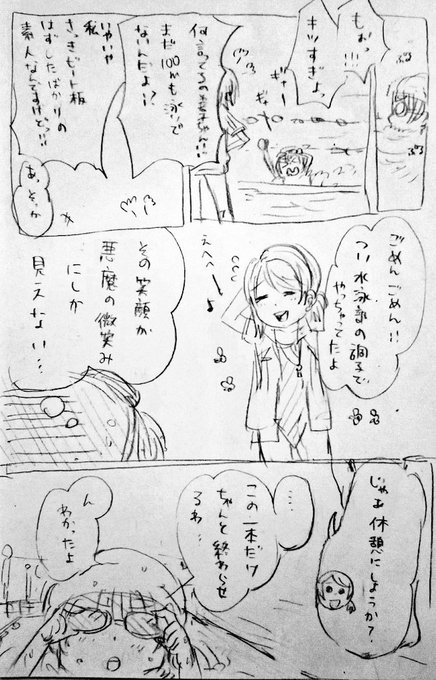 もぉっ!!!
キツすぎよっ
ギャー
ギャー
ぷる
ぷる
何言ってるの善子ちゃん!!
まだ100mも泳いで
ないんだよ?!
いやいや
私
さっきビート板
はずしたばかりの
素人なんですけどっ!!
あ、そっか
ごめんごめん!!
つい水泳部の調子で
やっちゃってたよ
えへへー
その笑顔が
悪魔の微笑み
にしか
見えない…
じゃあ休憩にしようか?
…
この一本だけ
ちゃんと終わらせ
るわ…
ん
わかったよ